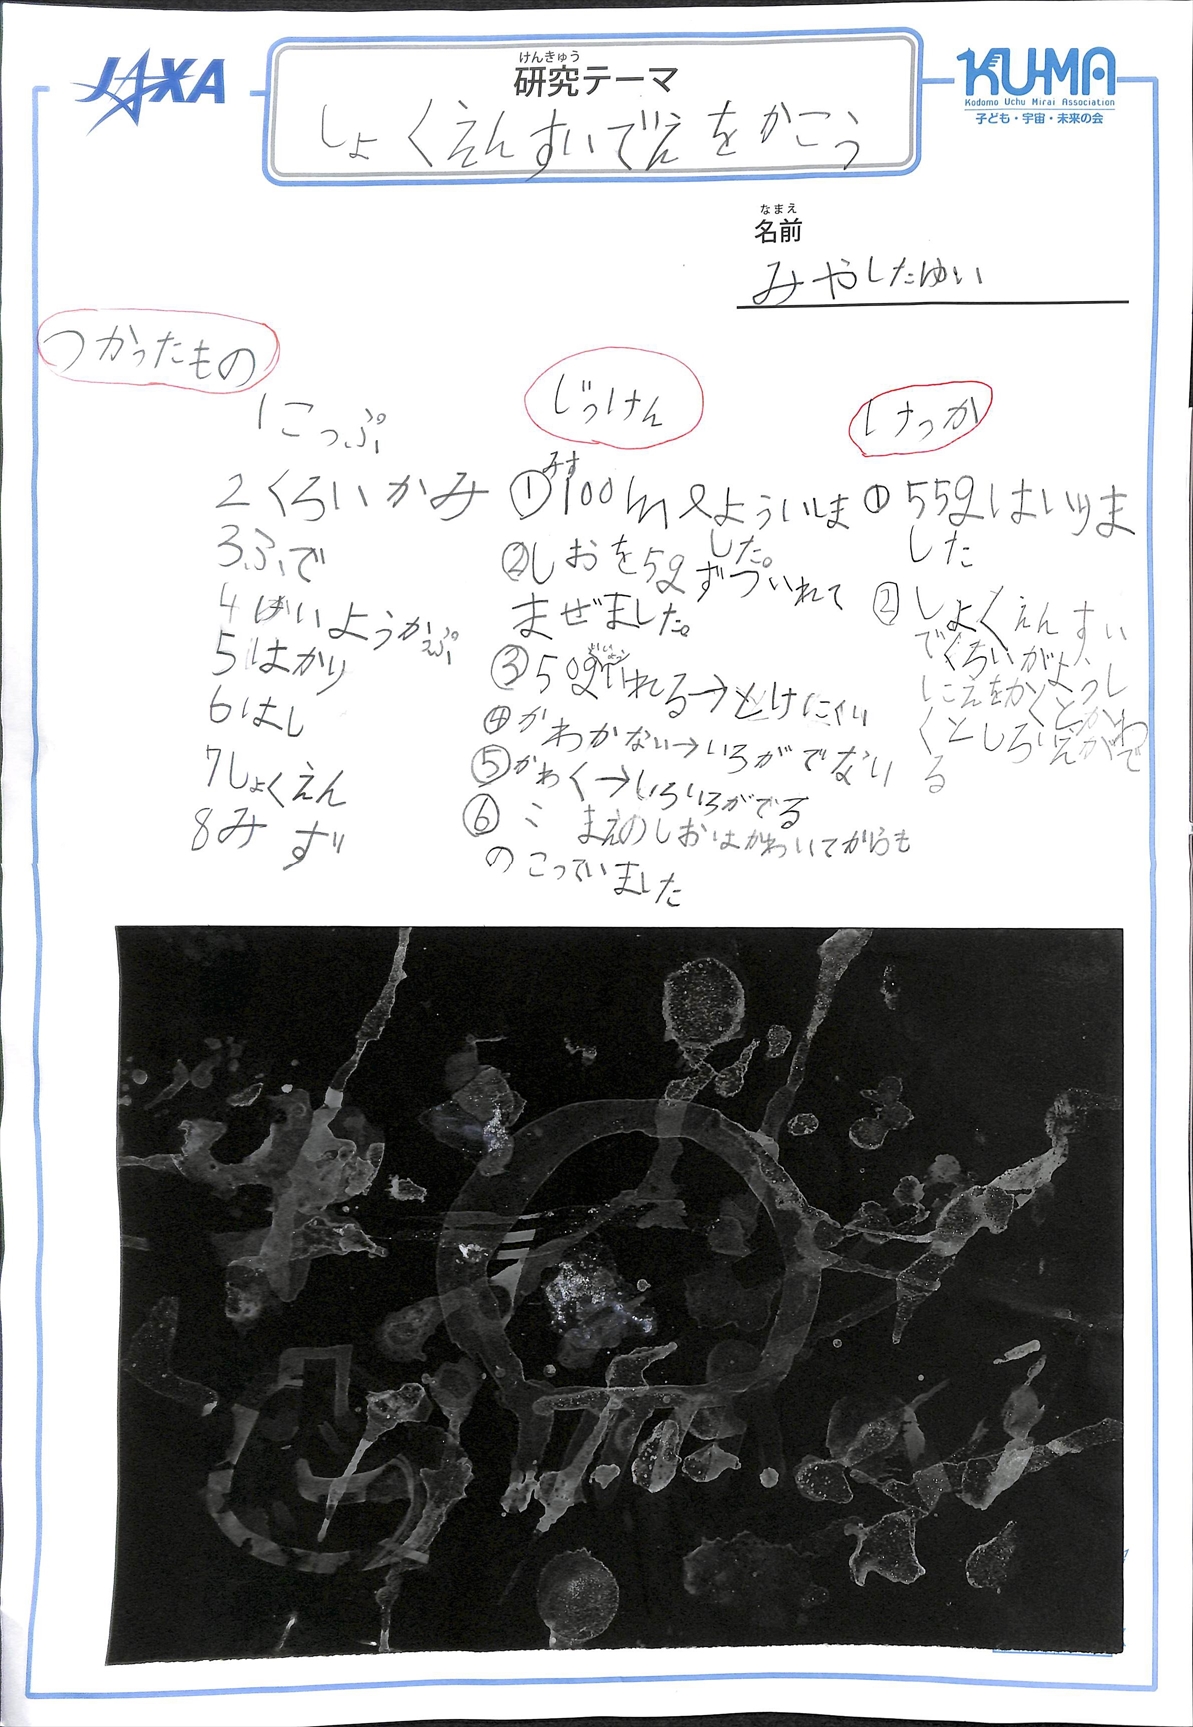 JAXA
けんきゅう
研究テーマ
しょくえんすいでえをかこう
KU-MA
Kodomo Uchu Mirai Association
子ども・宇宙・未来の会
なまえ
名前
みやしたゆい
つかったもの
1こっぷ
2くろいかみ
3ふで
4けいようかっぷ
5はかり
6はし
7しょくえん
8みず
じっけん
みず
①100mlよういしま
した。
②しおを5gずついれて
まぜました。
③50gいれる→とけにくい
④かわかない→いろがでない
⑤かわく→いろいろがでる
⑥こまえのしおはかわいてからも
のこっていました
けっか
①55gはいりま
した
②しょくえんすい
でくろいがよう
しにえをかくとかわ
くとしろいえがで
る